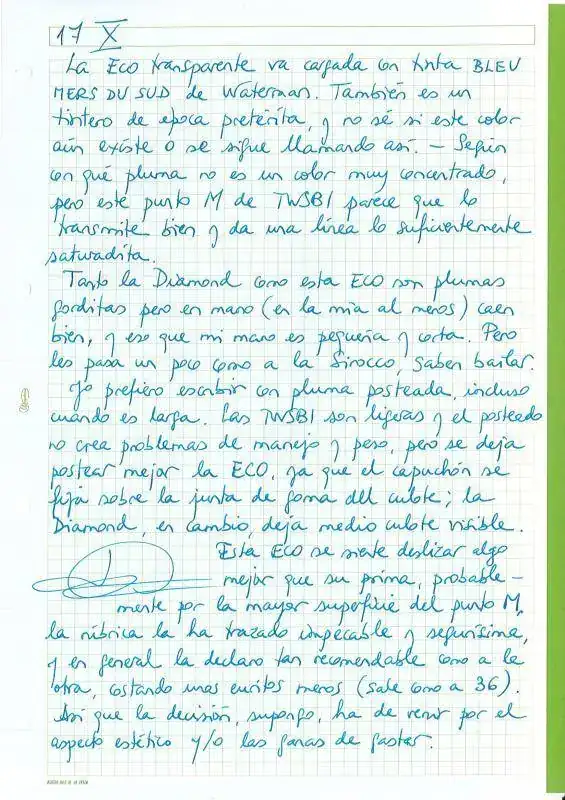 17 X
La Eco transparente va cargada con tinta BLEU
MERS DU SUD de Waterman. También es un
tintero de época pretérita, y no sé si este color
aún existe o se sigue llamando así. – Según
con qué pluma no es un color muy concentrado,
pero este punto M de TWSBI parece que lo
transmite bien y da una línea lo suficientemente
saturadita.
Tanto la Diamond como esta ECO son plumas
gorditas pero en mano (en la mía al menos) caen
bien, y eso que mi mano es pequeña y corta. Pero
les pasa un poco como a la Sirocco, saben bailar.
Yo prefiero escribir con pluma posteada, incluso
cuando es larga. Las TWSBI son ligeras y el posteado
no crea problemas de manejo y peso, pero se deja
postear mejor la ECO, ya que el capuchón se
fija sobre la junta de goma del culote; la
Diamond, en cambio, deja medio culote visible.
Esta ECO se siente deslizar algo
mejor que su prima, probable–
mente por la mayor superficie del punto M,
la rúbrica la ha trazado impecable y segurísima,
y en general la declaro tan recomendable como a la
otra, costando unos euritos menos (sale como a 36).
Así que la decisión, supongo, ha de venir por el
aspecto estético y/o las ganas de gastar.